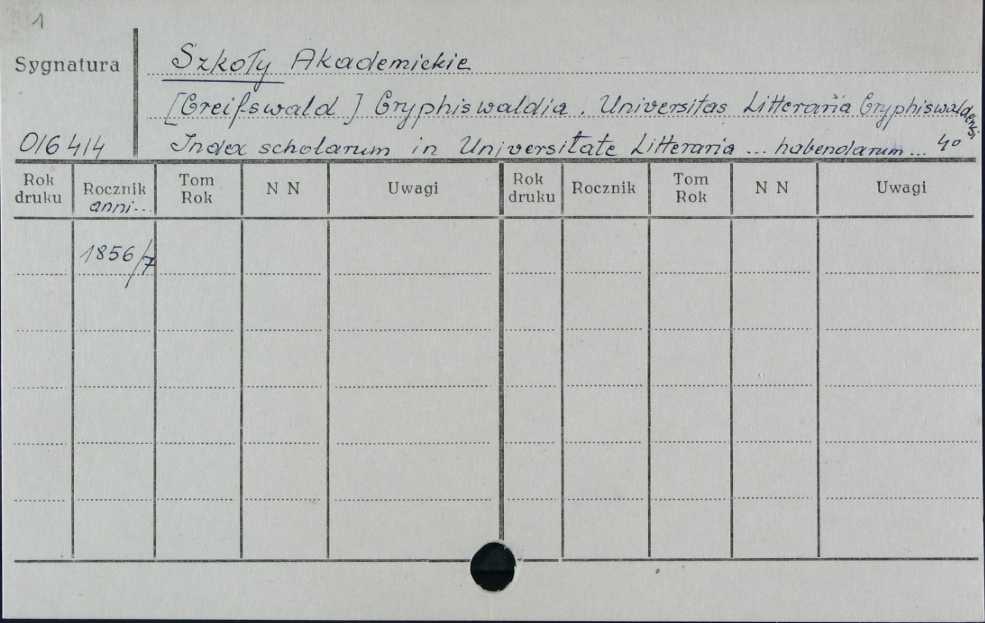 1
Sygnatura
Szkoły Akademickie
[Greifswald] Gryphiswaldia. Universitas Litteraria Gryphiswaldensis
016414
Index scholarum in Universitate Litteraria ... habendarum ... 4°
Rok druku Rocznik Tom Rok N N Uwagi Rok druku Rocznik Tom Rok N N Uwagi
anni...
1856/7